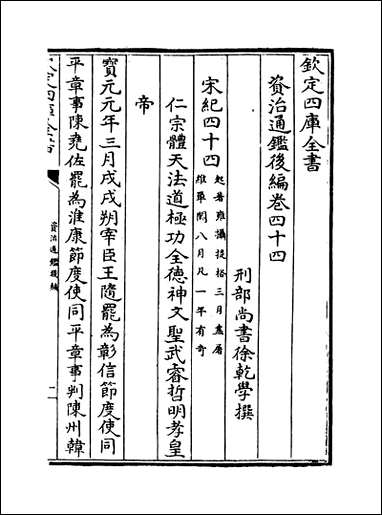 欽定四庫全書
資治通鑑後編卷四十四
刑部尚書徐乾學撰
宋紀四十四
起著雍攝提格三月盡屠
維單閼八月凡一年有奇
仁宗體天法道極功全德神文聖武睿哲明孝皇
帝
寶元元年三月戊戌朔宰臣王隨罷為彰信節度使同
平章事陳堯佐罷為淮康節度使同平章事判陳州韓
資治通鑑後編